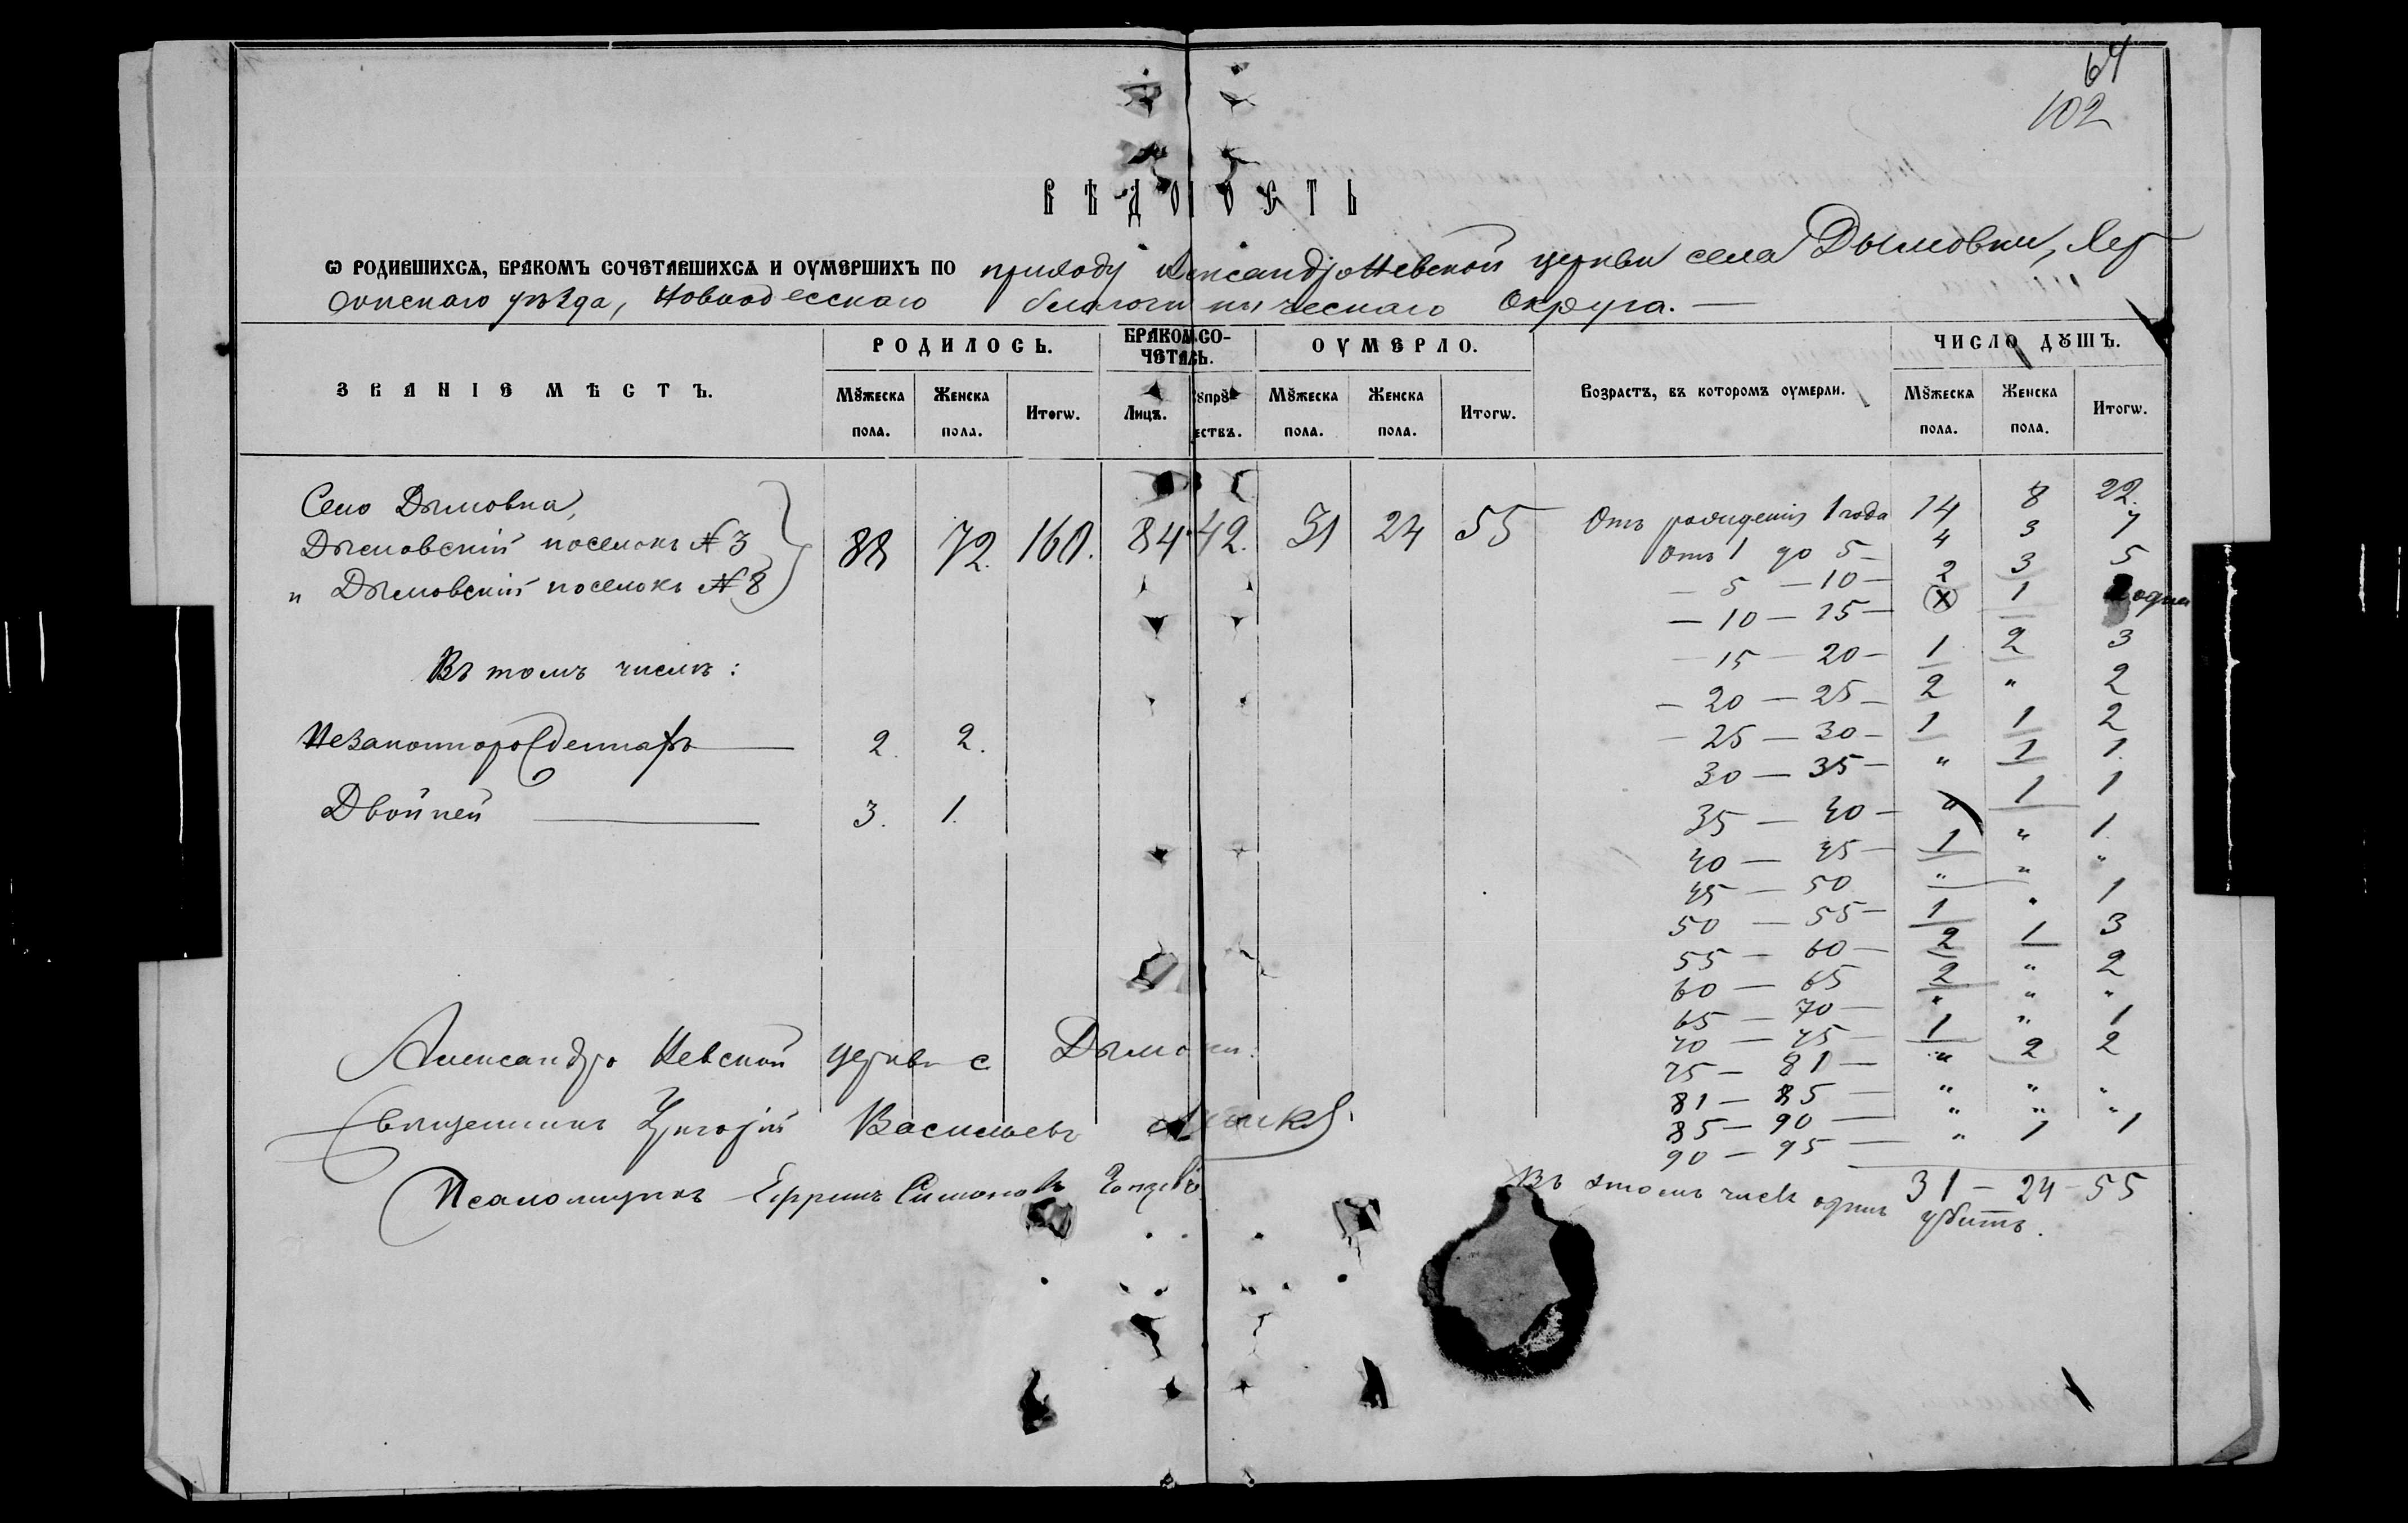 64
102
ВѢДОМОСТЬ
Ѡ РОДИВШИХСѦ, БРАКОМЪ СОЧЕТАВШИХСѦ И ОУМЕРШИХЪ ПО приходу Александро Невской церкви села Дымовки, Хер
сонскаго уѣзда, Новоодесскаго благочинническаго Округа. —
ЗВАНІЕ МѢСТЪ. РОДИЛОСЬ. БРАКОМ. СО-ЧЕТАСЬ. ОУМЕРЛО. Возрастъ, въ которомъ оумерли. ЧИСЛО ДꙊШЪ.
Мꙋжеска пола. Женска пола. Итогѡ. Лицъ. Сꙋпрꙋжествъ. Мꙋжеска пола. Женска пола. Итогѡ. Мꙋжеска пола. Женска пола. Итогѡ.
Село Дымовка,
Дымовскій поселокъ № 3
и Дымовскій поселокъ № 8
88 72. 160. 84 42. 31 24 55
Отъ рожденія 1 года 14 8 22.
Отъ 1 до 5 — 4 3 7
— 5 — 10 — 2 3 5
— 10 — 15 — X 1 одна
— 15 — 20 — 1 2 3
— 20 — 25 — 2 " 2
— 25 — 30 — 1 1 2
30 — 35 — " 1 1.
35 — 40 — " 1 1
40 — 45 — 1 " 1.
45 — 50 " " "
50 — 55 — 1 " 1
55 — 60 — 2 1 3
60 — 65 2 " 2
65 — 70 — " " "
70 — 75 — 1 " 1
75 — 81 — " 2 2
81 — 85 — " " "
85 — 90 — " " "
90 — 95 — " 1 1
31 — 24 — 55
Въ этомъ числѣ одинъ убитъ.
Въ томъ числѣ:
Незаконнорожденныхъ — 2. 2.
Двойней — 3. 1.
Александро Невской церкви с. Дымовки
Священникъ Григорій Васильевъ
Псаломщикъ Ефремъ Симоновъ